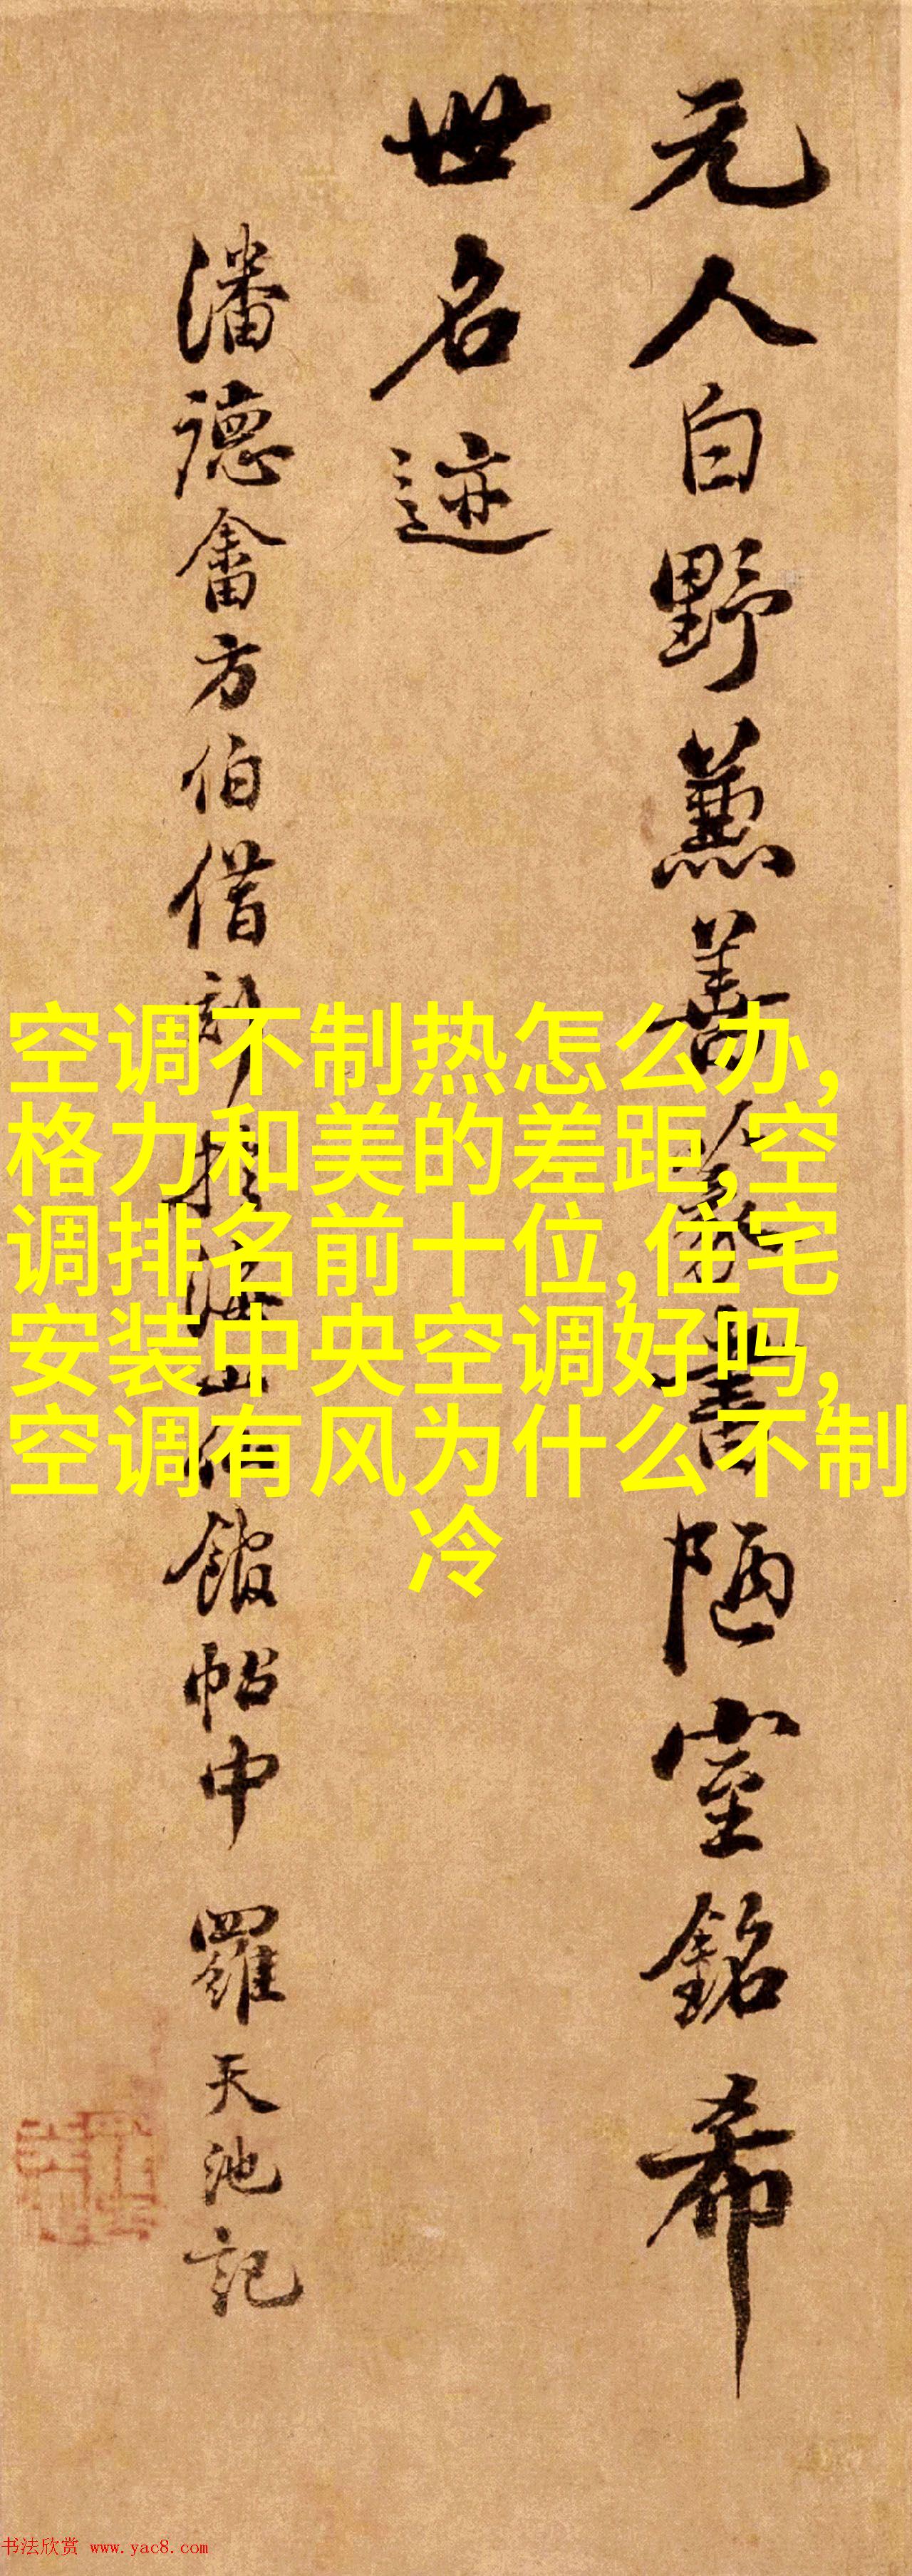 元人白野兼善篆書陋室銘希
世名迹
潘德畬方伯借刻扵海山仙館帖中 羅天池記
空调不制热怎么办,
格力和美的差距,空
调排名前十位,住宅
安装中央空调好吗,
空调有风为什么不制
冷
书法欣赏 www.yac8.com